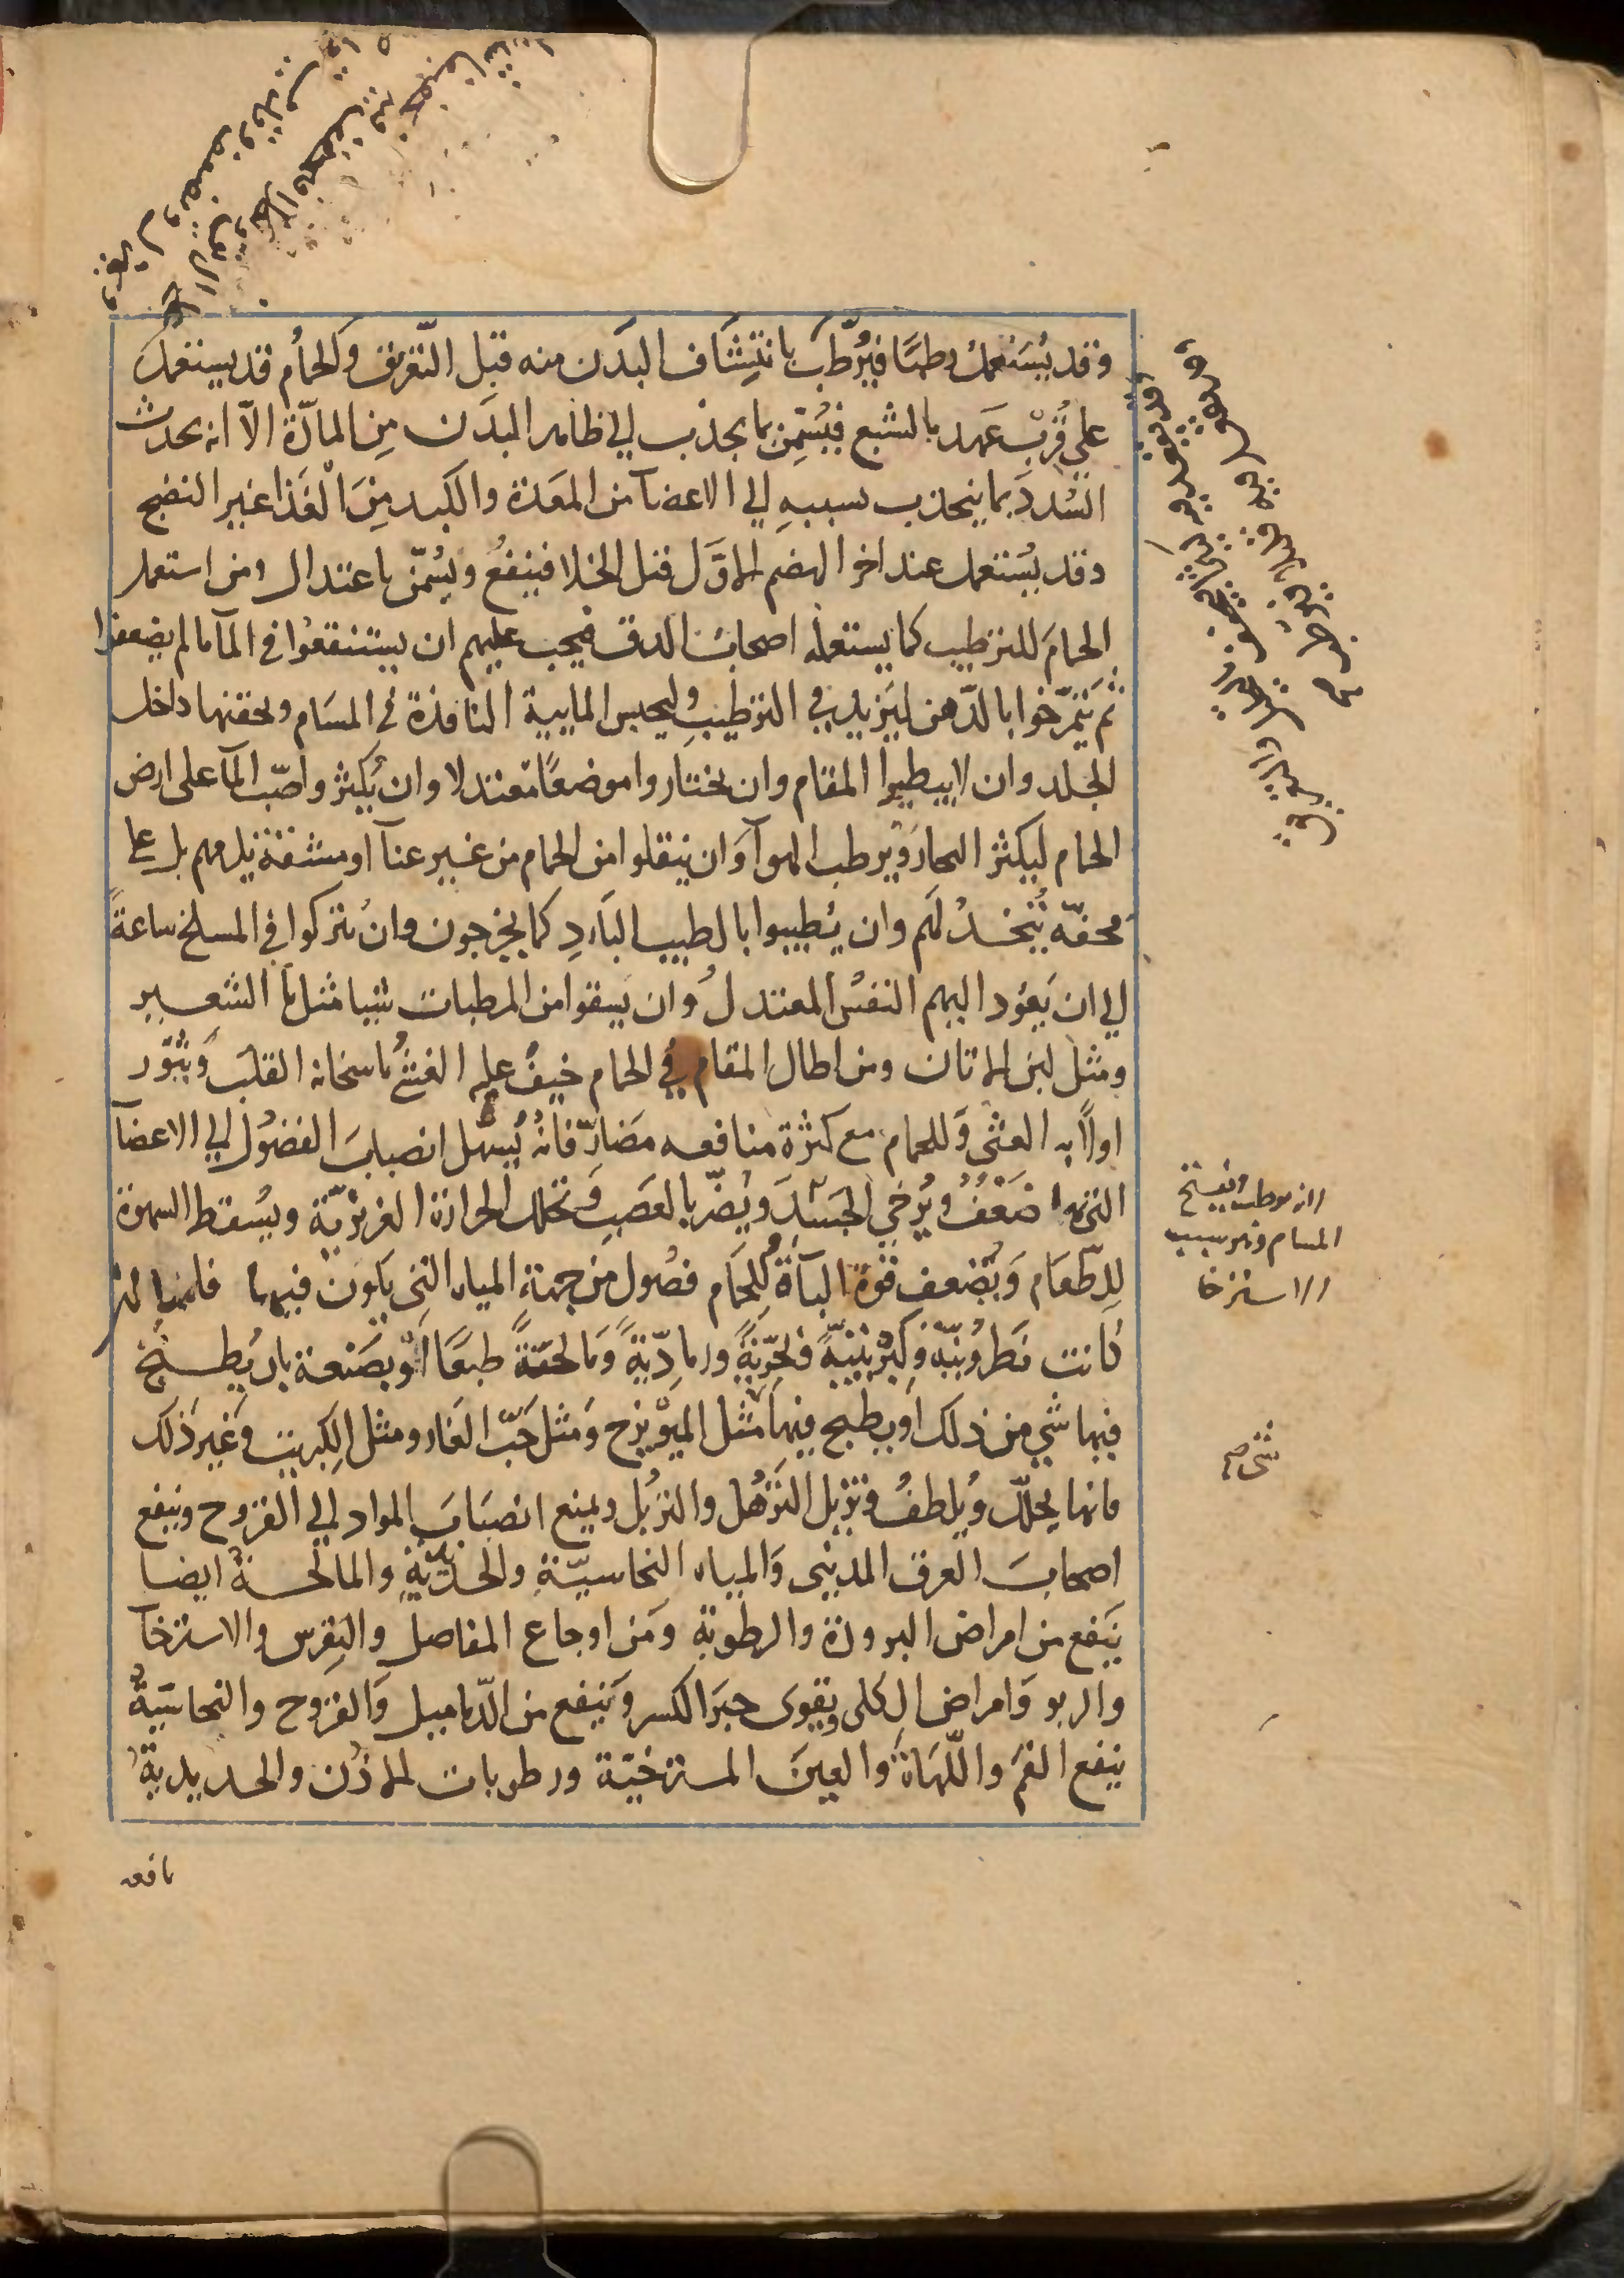 وقد يُستعمل رطبًا فيُرطّب بانتشاف البدن منه قبل التعريق والحمام قد يستعمل
على قُرب عهد بالشبع فيُسمّن بما يجذب الي ظاهر البدن مِن المادّة الّا انه يحدث
السُّدد بما ينجذب بسببهِ الي الاعضآ من المعدة والكبد مِن الغذا غير النضج
وقد يُستعمل عند اخر الهضم الاوّل قبل الخلا فينفعُ ويُسمّن باعتدال ومن استعمل
الحمامَ للترطيب كما يستعمله اصحاب الدق فيجب عليهم ان يستنقعوُا في المآ ما لم يضعفوا
ثم يَتمرّخوا بالدّهن ليَزيد في الترطيب وليحبس المايية النافذة في المسَام ويحقنها داخل
الجلد وان لا يبطيوا المقام وان يختاروا موضعًا معتدلا وان يُكثروا صبّ المآ على ارض
الحمام ليكثر البخار ويرطب الهوآ وَان ينقلوا من الحمام من غير عنآ او مشقة يلزمهم بل على
محفّه تُتخذُ لَهم وان يُطيبوا بالطيب البَاردِ كما يخرجون وان يُتركوا في المسلخ ساعةً
الي ان يَعوُد اليهم النفسُ المعتدلُ وان يسقوا من المرطبات شيا مثل مآ الشعير
ومثل لبن الاتان ومن اطال المقام في الحمام خيفُ عليه الغشيُ باسخانه القلبَ وَيثوّر
اولًا به الغثى وَللحمام مع كثرة منافعه مضَارّ فانهُ يُسهّل انصبابَ الفضوُل الي الاعضآ
التى بها ضَعْفُ ويُرخي الجَسَدَ ويُضرّ بالعَصَبِ وَتحلل الحرارة الغريزيّة ويُسقط الشهوة
للِطّعَام وَيُضعف قوة البآة وَللحمَام فصُول من جهة المياه التى يكون فيها فانها ان
كانت نَطروُنيّة وَكبْريتيّة وبَحْريّةً ورمادِيّةً وَمالحةً طبعًا اَوْ بصَنعة بان يُطبخ
فيها شي من ذلك اَو يطبخ فيها مثل الميوْيزج وَمثل حَبّ الغار ومثل الكِبريت وَغير ذَلك
فانها يحلّل وُيلطفُ وتزيل التَرهُّل والتربُل ويمنع انصبَابَ المواد الي القروح وينفع
اصحابَ العرق المدينى وَالمياه النحاسيّةِ والحديديّةِ والمالحةُ ايضا
ينَفع من امراض البرودة والرطوبة وَمَن اوجاع المفاصل والنِقرس والاسترخآ
والربو وَامراض الكلى ويقوى جبرَ الكسر وَينفع من الدّماميل وَالقروح والنحاسيَةُ
ينفع الفمَ واللّهَاةَ وَالعينَ المسترخيَة ورطوبات الاذن والحديديةُ
نافعه
لانه يوطب ويفتح
المسام وهو سبب
الاسترخا
شى صح